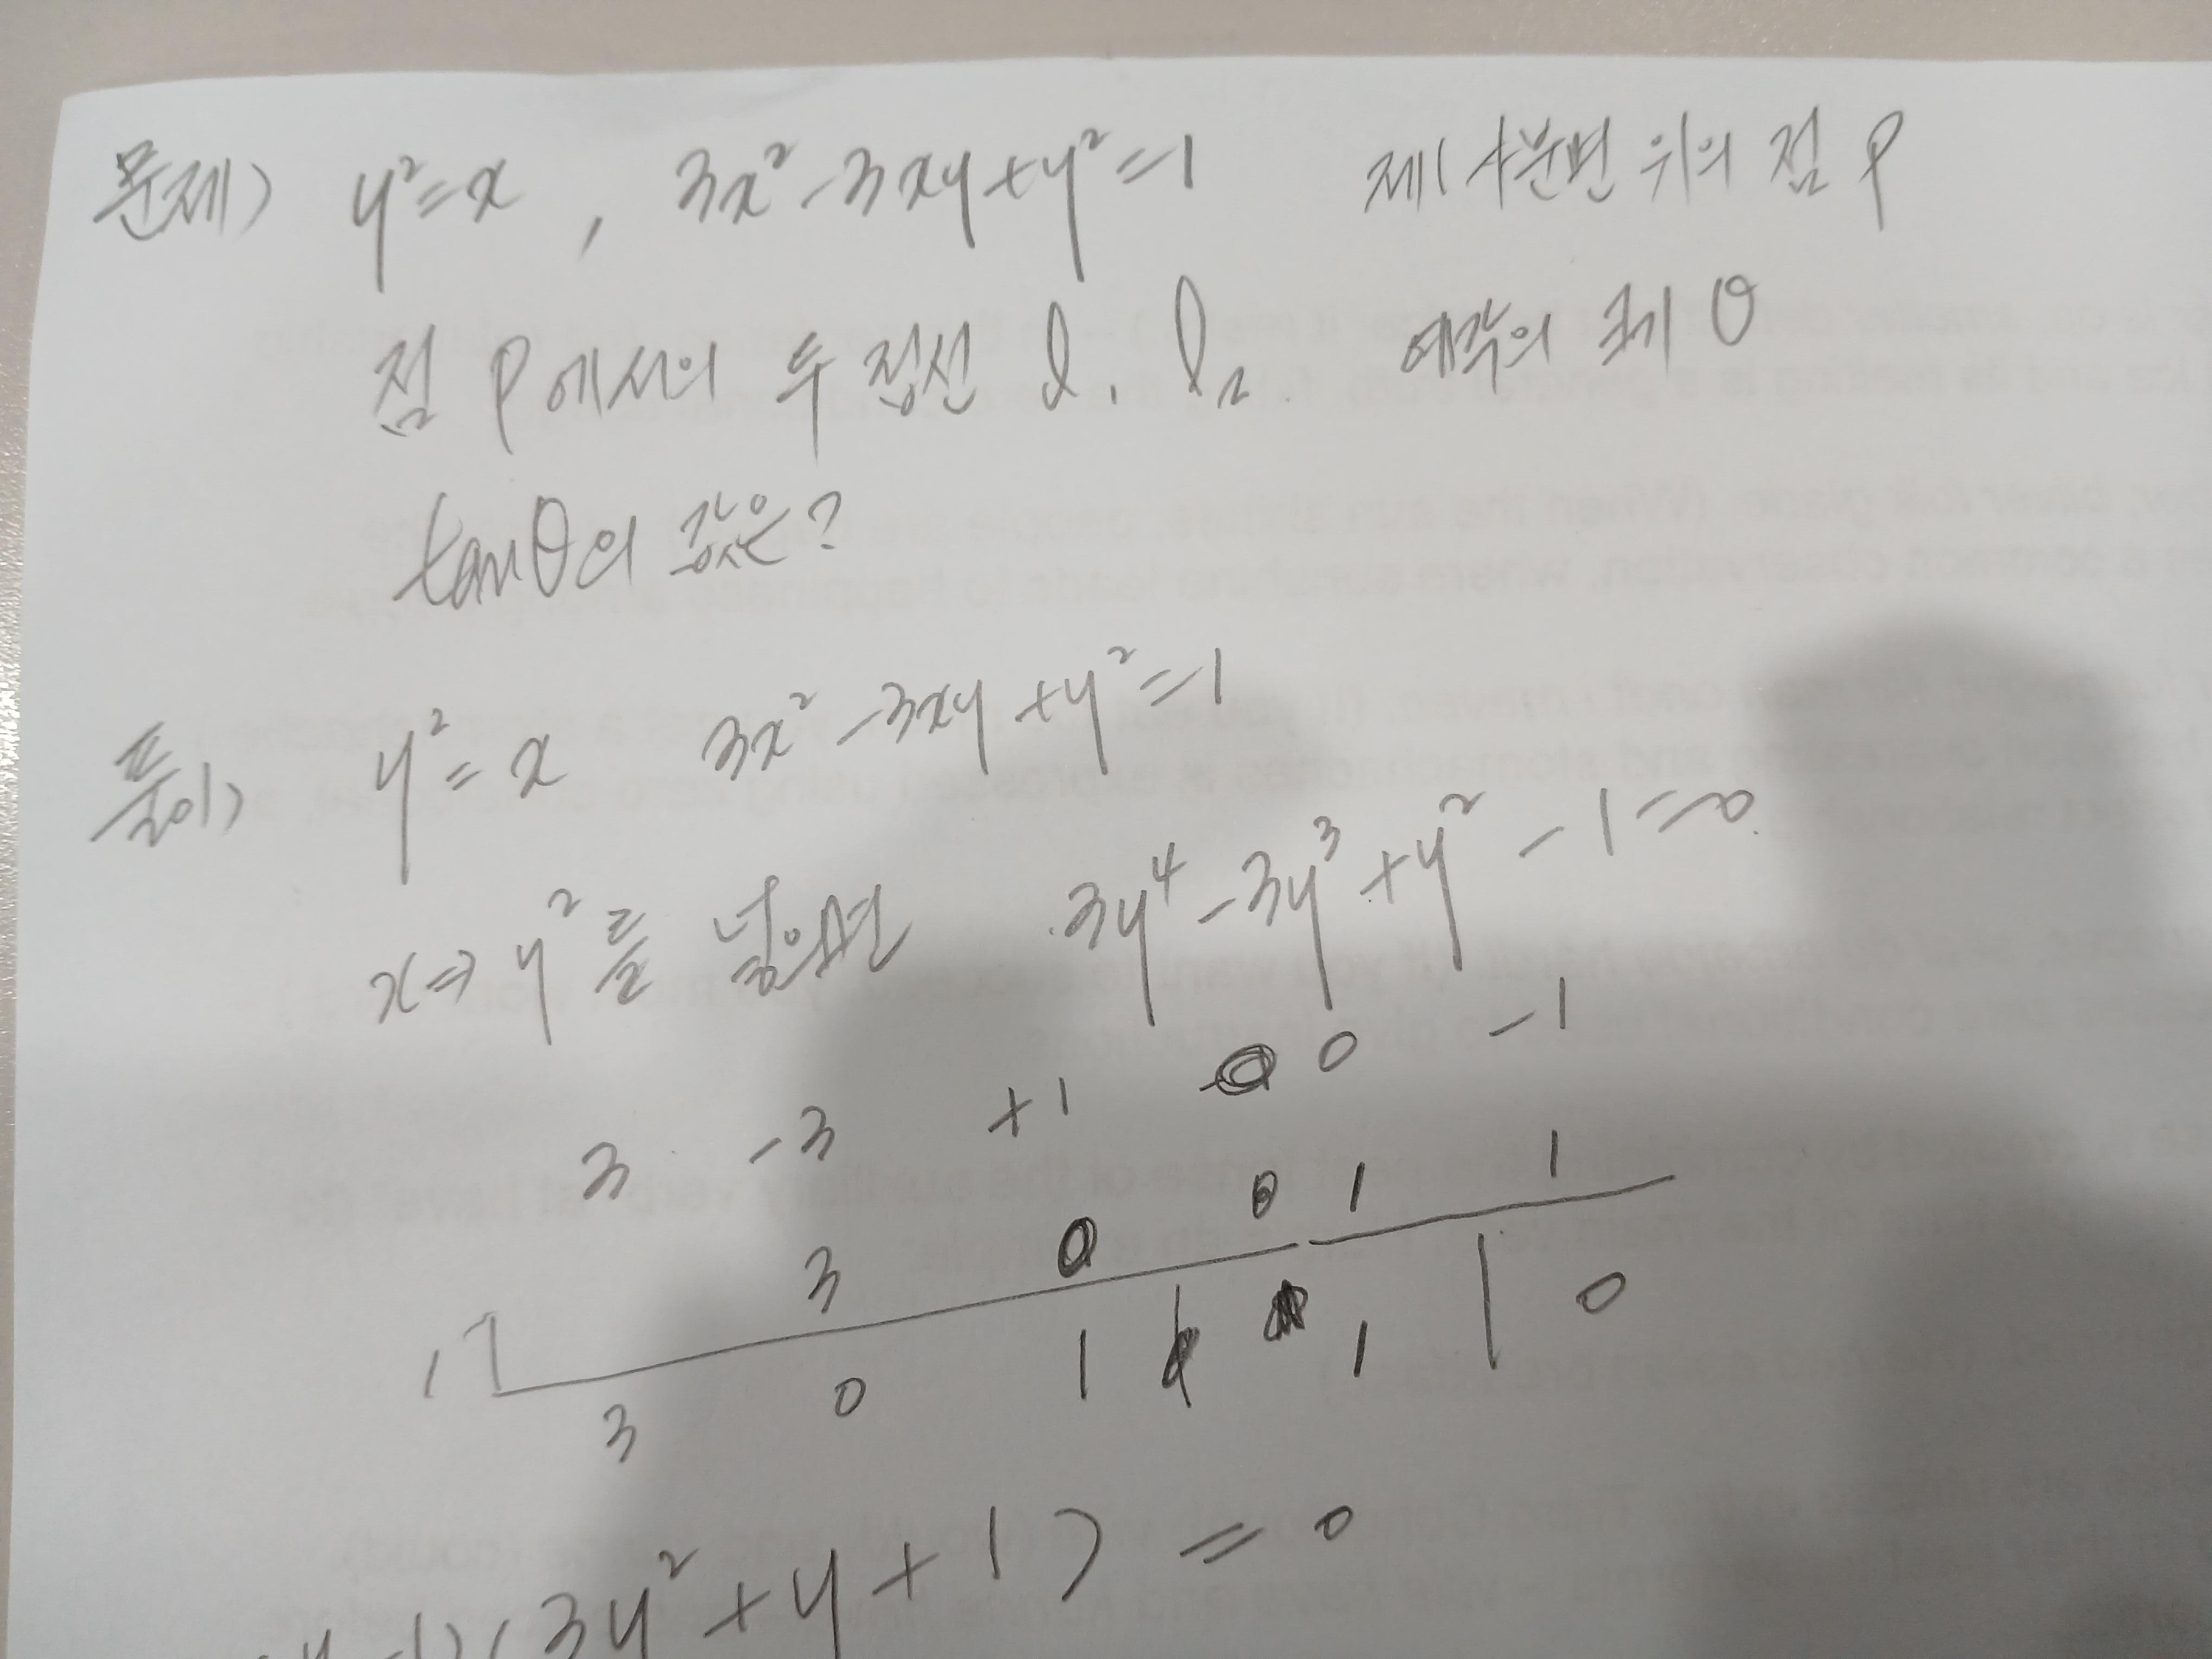 문제) y²=x , 3x²-3xy+y²=1 제1사분면 위의 점 P
점 P에서의 두 접선 l₁ l₂ 예각의 크기 θ
tanθ의 값은?
풀이) y²=x 3x²-3xy+y²=1
x⇒y²를 넣으면 3y⁴-3y³+y²-1=0
3 -3 +1 0 -1
3 0 0 1 1
1 3 0 1 1 0
-1)(3y²+y+1)=0